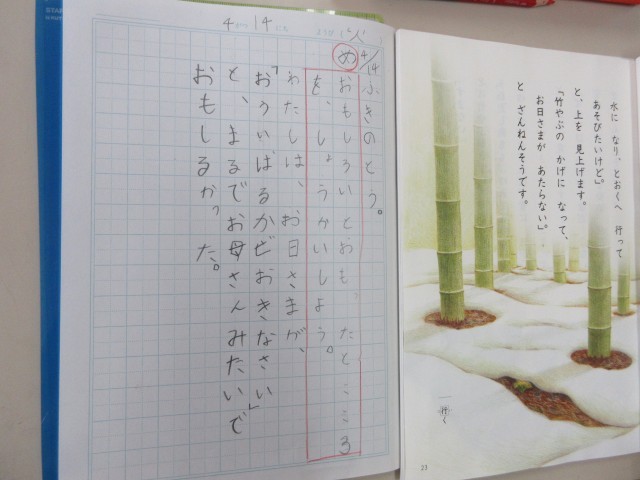 4 14 にち
4/14
ふきのとう。
め
おもしろいとおもったところ
を、しょうかいしよう。
わたしは、お日さまが、
「おういばるかぜおきなさい」
と、まるでお母さんみたいで
おもしるかった。
水に なり、とおくへ 行って
あそびたいけど」。
と、上を 見上げます。
「竹やぶの かげに なって、
お日さまが あたらない」。
と ざんねんそうです。
行く
23